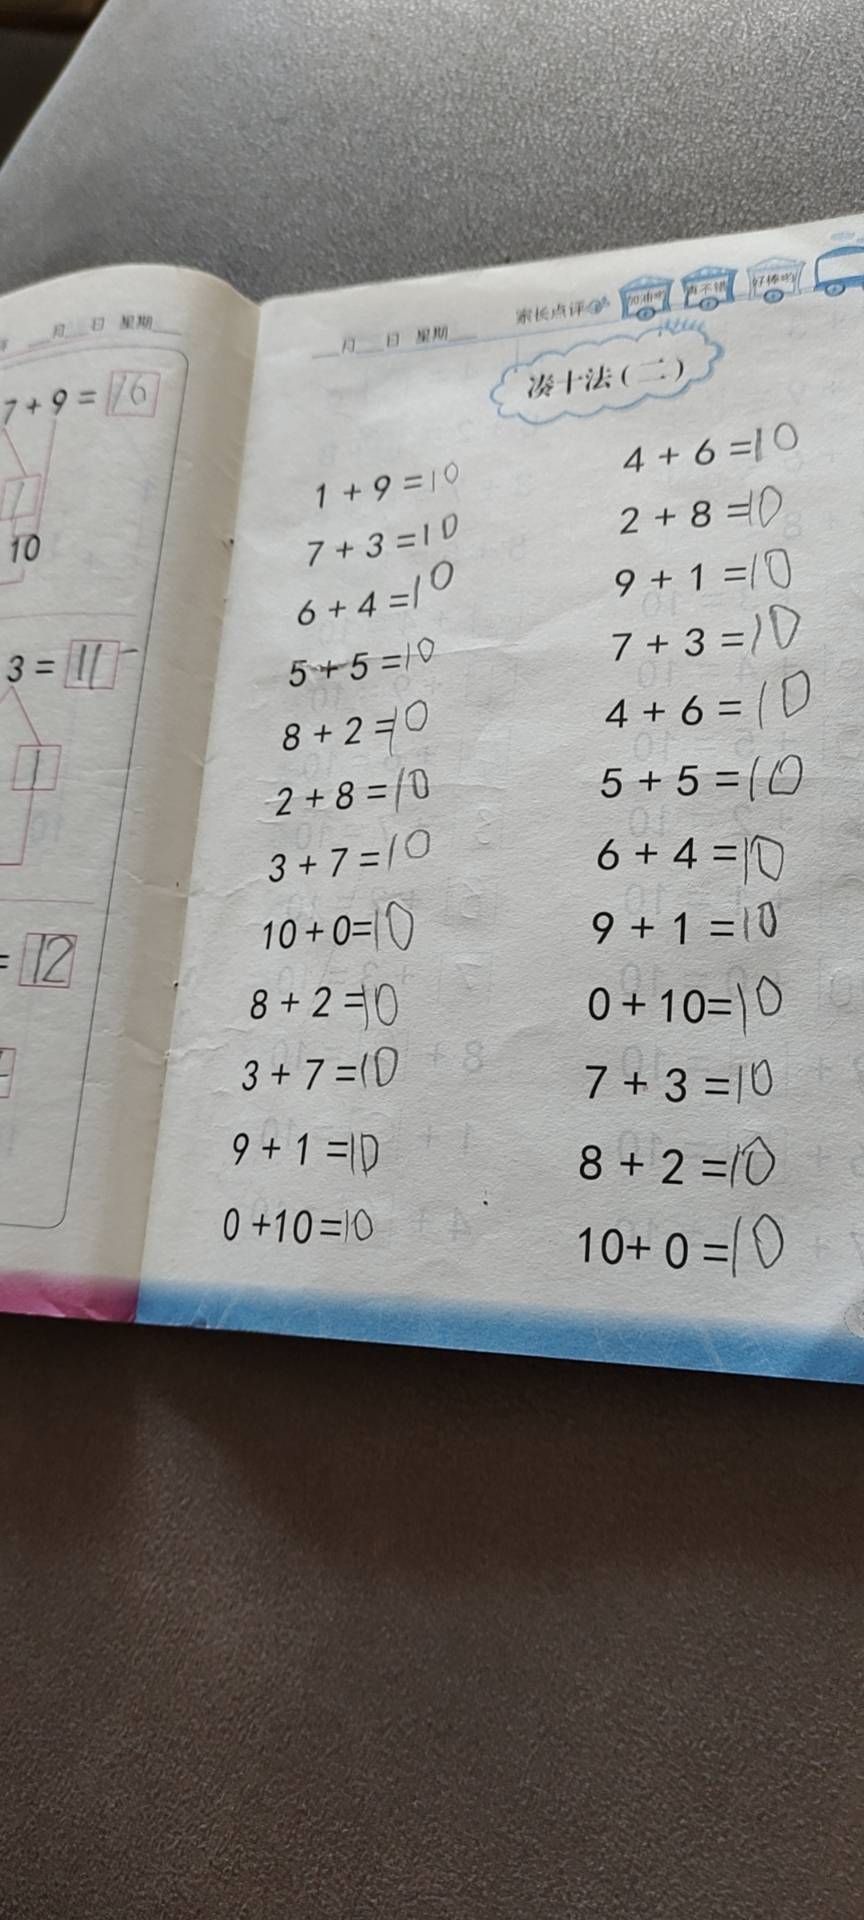 月 日 星期
7 + 9 = 16
1
10
3 = 11
1
= 12
月 日 星期 家长点评 加油哟 真不错 好棒哟
凑十法(二)
1 + 9 = 10 4 + 6 = 10
7 + 3 = 10 2 + 8 = 10
6 + 4 = 10 9 + 1 = 10
5 + 5 = 10 7 + 3 = 10
8 + 2 = 10 4 + 6 = 10
2 + 8 = 10 5 + 5 = 10
3 + 7 = 10 6 + 4 = 10
10 + 0 = 10 9 + 1 = 10
8 + 2 = 10 0 + 10 = 10
3 + 7 = 10 7 + 3 = 10
9 + 1 = 10 8 + 2 = 10
0 + 10 = 10 10 + 0 = 10